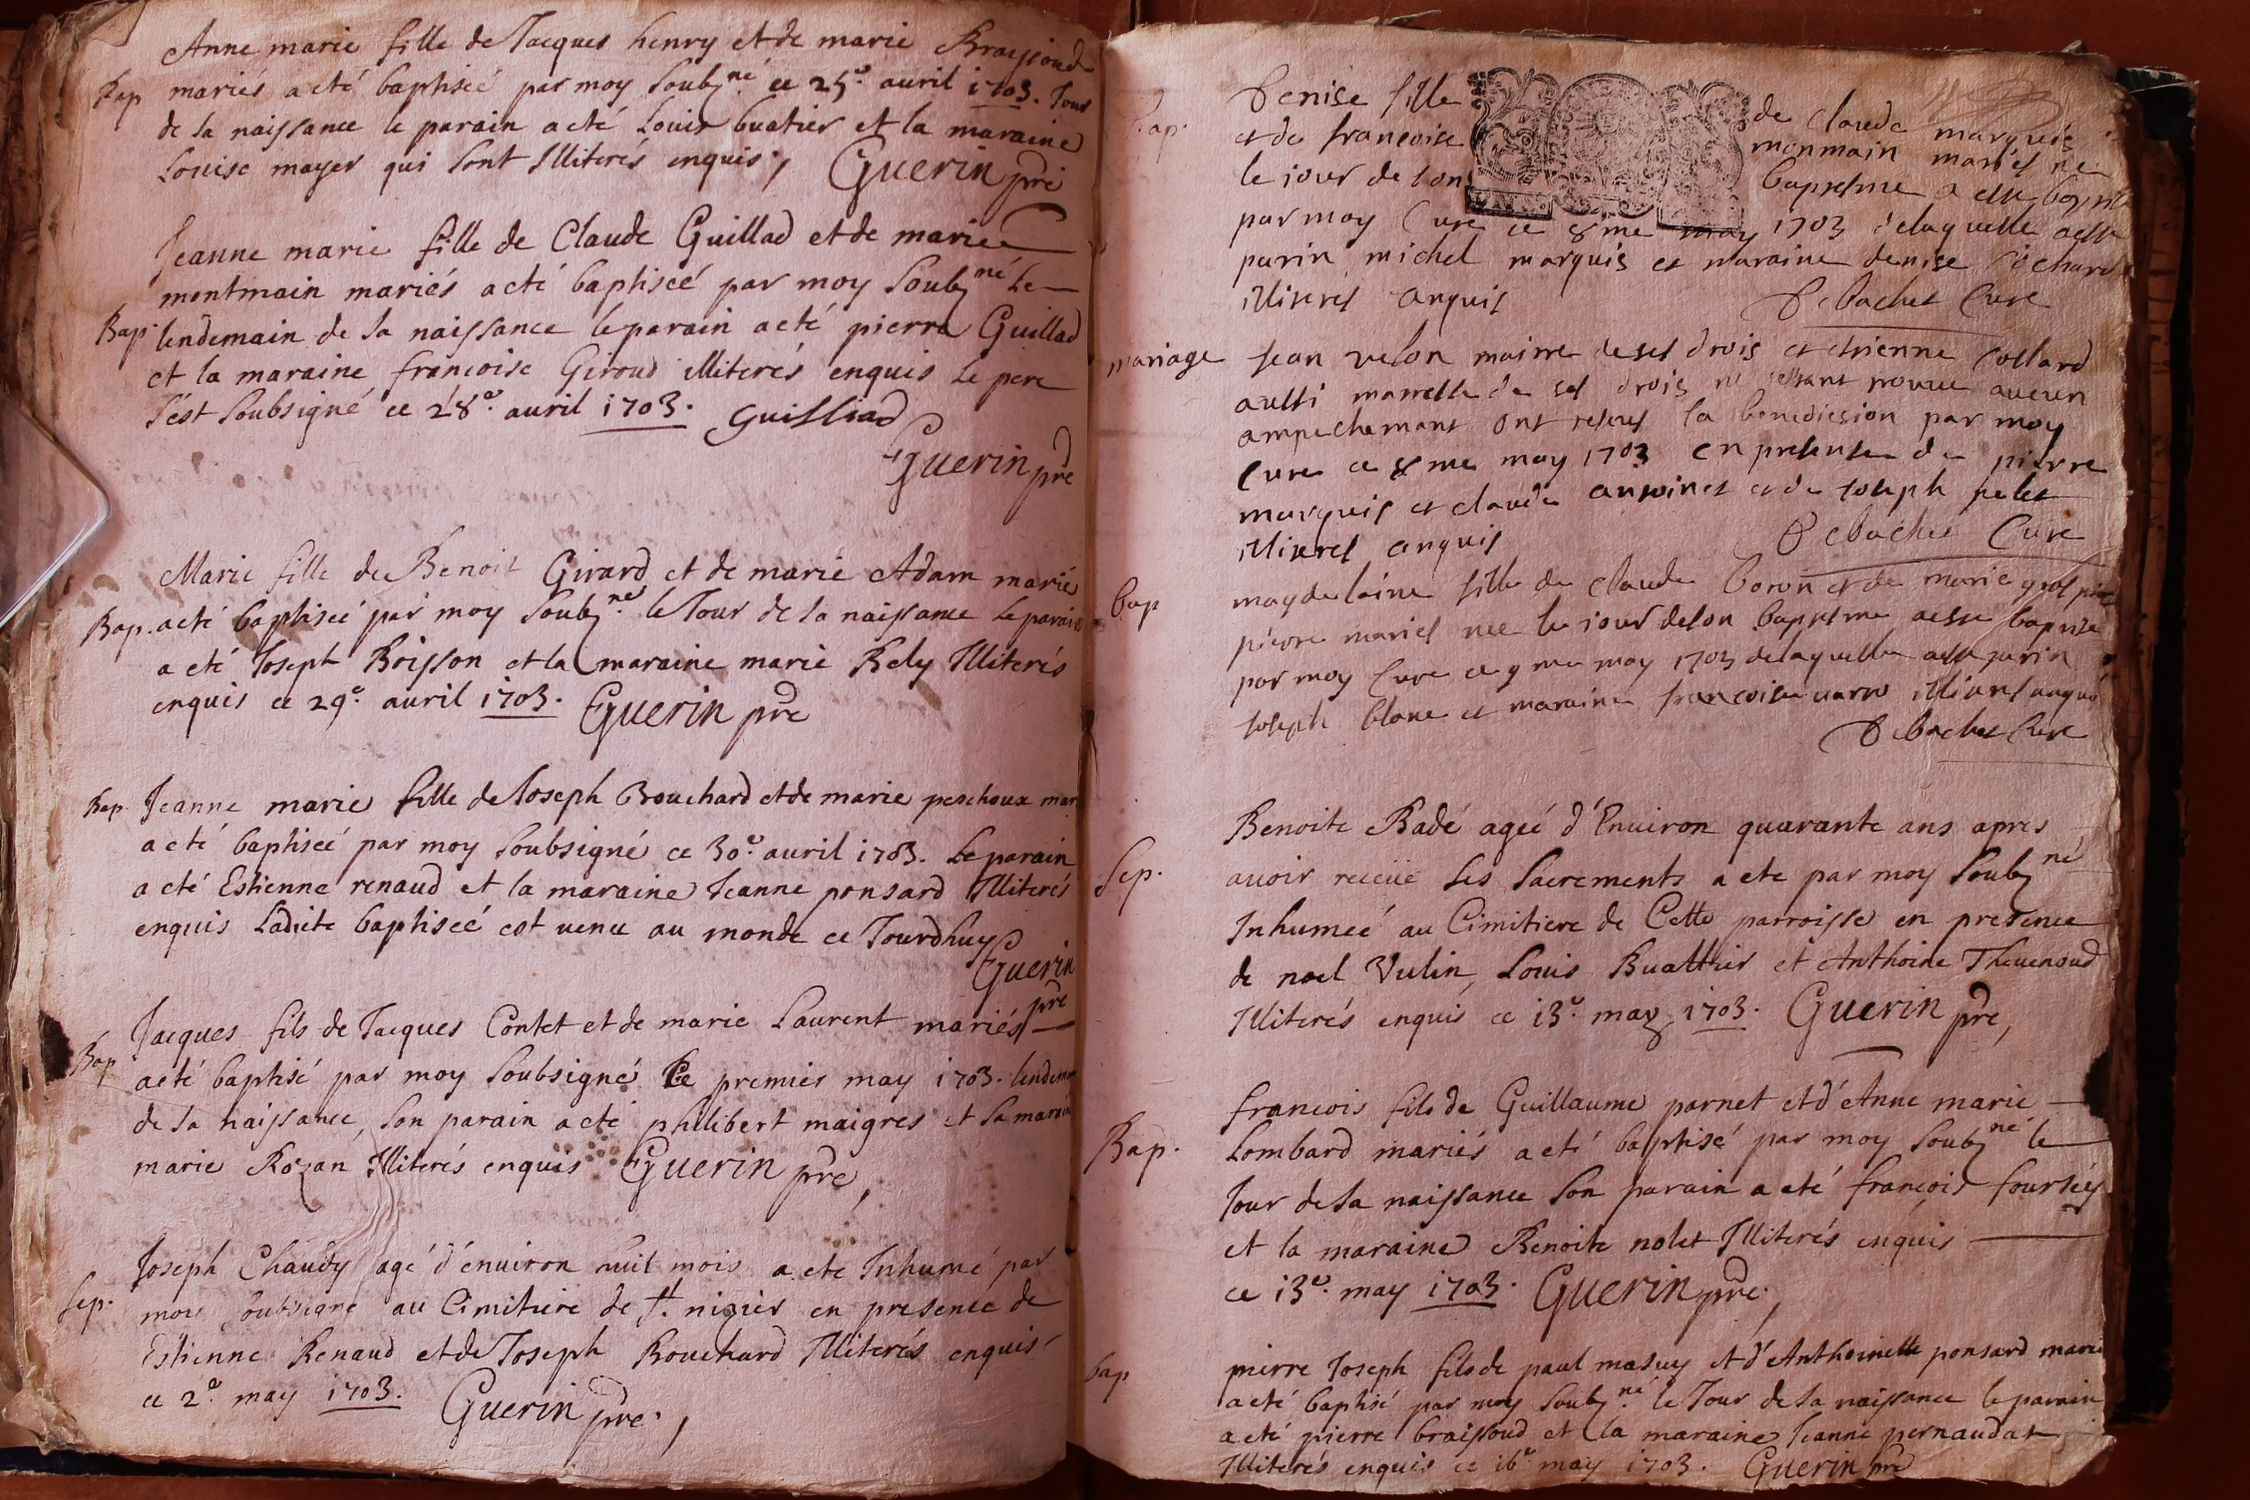 Anne marie fille de Jacques henry et de marie Braissoud
Bap mariés a eté baptiseé par moy Soubz.né ce 25e. auril 1703. Jour
de sa naissance le parain a eté Louis buatier et la maraine
Louise mayer qui sont Illiterés enquis, Guerin pre
Jeanne marie fille de Claude Guillad et de marie
montmain mariés a eté baptiseé par moy Soubz.né Le
Bap. lendemain de sa naissance le parain a eté pierre Guillad
et la maraine francoise Giroud illiterés enquis Le pere
s'est soubsigné ce 28e. auril 1703. Guilliad
Guerin pre
Marie fille de Benoit Girard et de marie Adam mariés
Bap. a eté baptiseé par moy Soubz.né le Jour de sa naissance Le parain
a eté Joseph Boisson et la maraine marie Rely Illiterés
enquis ce 29e. auril 1703. Guerin pre
Bap Jeanne marie fille de Joseph Bouchard et de marie peschoux mar
a eté baptiseé par moy soubsigné ce 30e. auril 1703. Le parain
a eté Estienne renaud et la maraine Jeanne ponsard Illiterés
enquis Ladite baptiseé est venue au monde ce Jourdhuy
Guerin
pre
Jacques fils de Jacques Contet et de marie Laurent mariés
Bap a eté baptisé par moy soubsigné Ce premier may 1703. lendem
de sa naissance, son parain a eté philibert maigres et sa marain
marie Rozan Illiterés enquis Guerin pre,
Joseph Chaudy agé d'enuiron huit mois a ete Inhumé par
Sep. moy soubsigné au Cimitiere de st. nizier en presence de
Estienne Renaud et de Joseph Bouchard Illiterés enquis
ce 2e may 1703. Guerin pre.,
Denise fille de claude marquis
Bap. et de francoise monmain mariés ne
le iour de son baptesme a este baptis
par moy Cure ce 8me may 1703 delaquelle a este
parin michel marquis et maraine denise Richard
illiteres anquis Debachet Cure
mariage Jean velon maitre de ses drois et etienne Collard
aussi maitresse de ses drois ne sestant trouve aucun
ampechemant ont reseus la benediction par moy
Cure ce 8me may 1703 en presense de pierre
marquis et claude antoinet et de Joseph pelet
illiteres anquis Debachet Cure
bap maydelaine fille de claude boron et de marie
pierre mariés nee le iour de son baptesme a este baptize
par moy Cure ce 9me may 1703 delaquelle a este parin
Joseph blanc et maraine francoise illiteres anquis
Debachet Cure
Benoite Badé ageé d'Enuiron quarante ans apres
Sep. auoir receüe les sacrements a ete par moy Soubz.né
Inhumeé au Cimitiere de Cette parroisse en presence
de noel Vulin, Louis Buattier et Anthoine Theuenoud
Illiterés enquis ce 13e. may 1703. Guerin pre,
francois fils de Guillaume parnet et d'Anne marie
Bap. Lombard mariés a eté baptisé par moy Soubz.né le
Jour de sa naissance son parain a eté francois foursey
et la maraine Benoite nolet Illiterés enquis
ce 13e. may 1703. Guerin pre.,
bap pierre Joseph fils de paul masuy et d'Anthoinette ponsard marié
a eté baptisé par moy Soubz.né le Jour de sa naissance le parain
a eté pierre braissoud et la maraine Jeanne pernaudat
Illiterés enquis ce 16e may 1703. Guerin pre